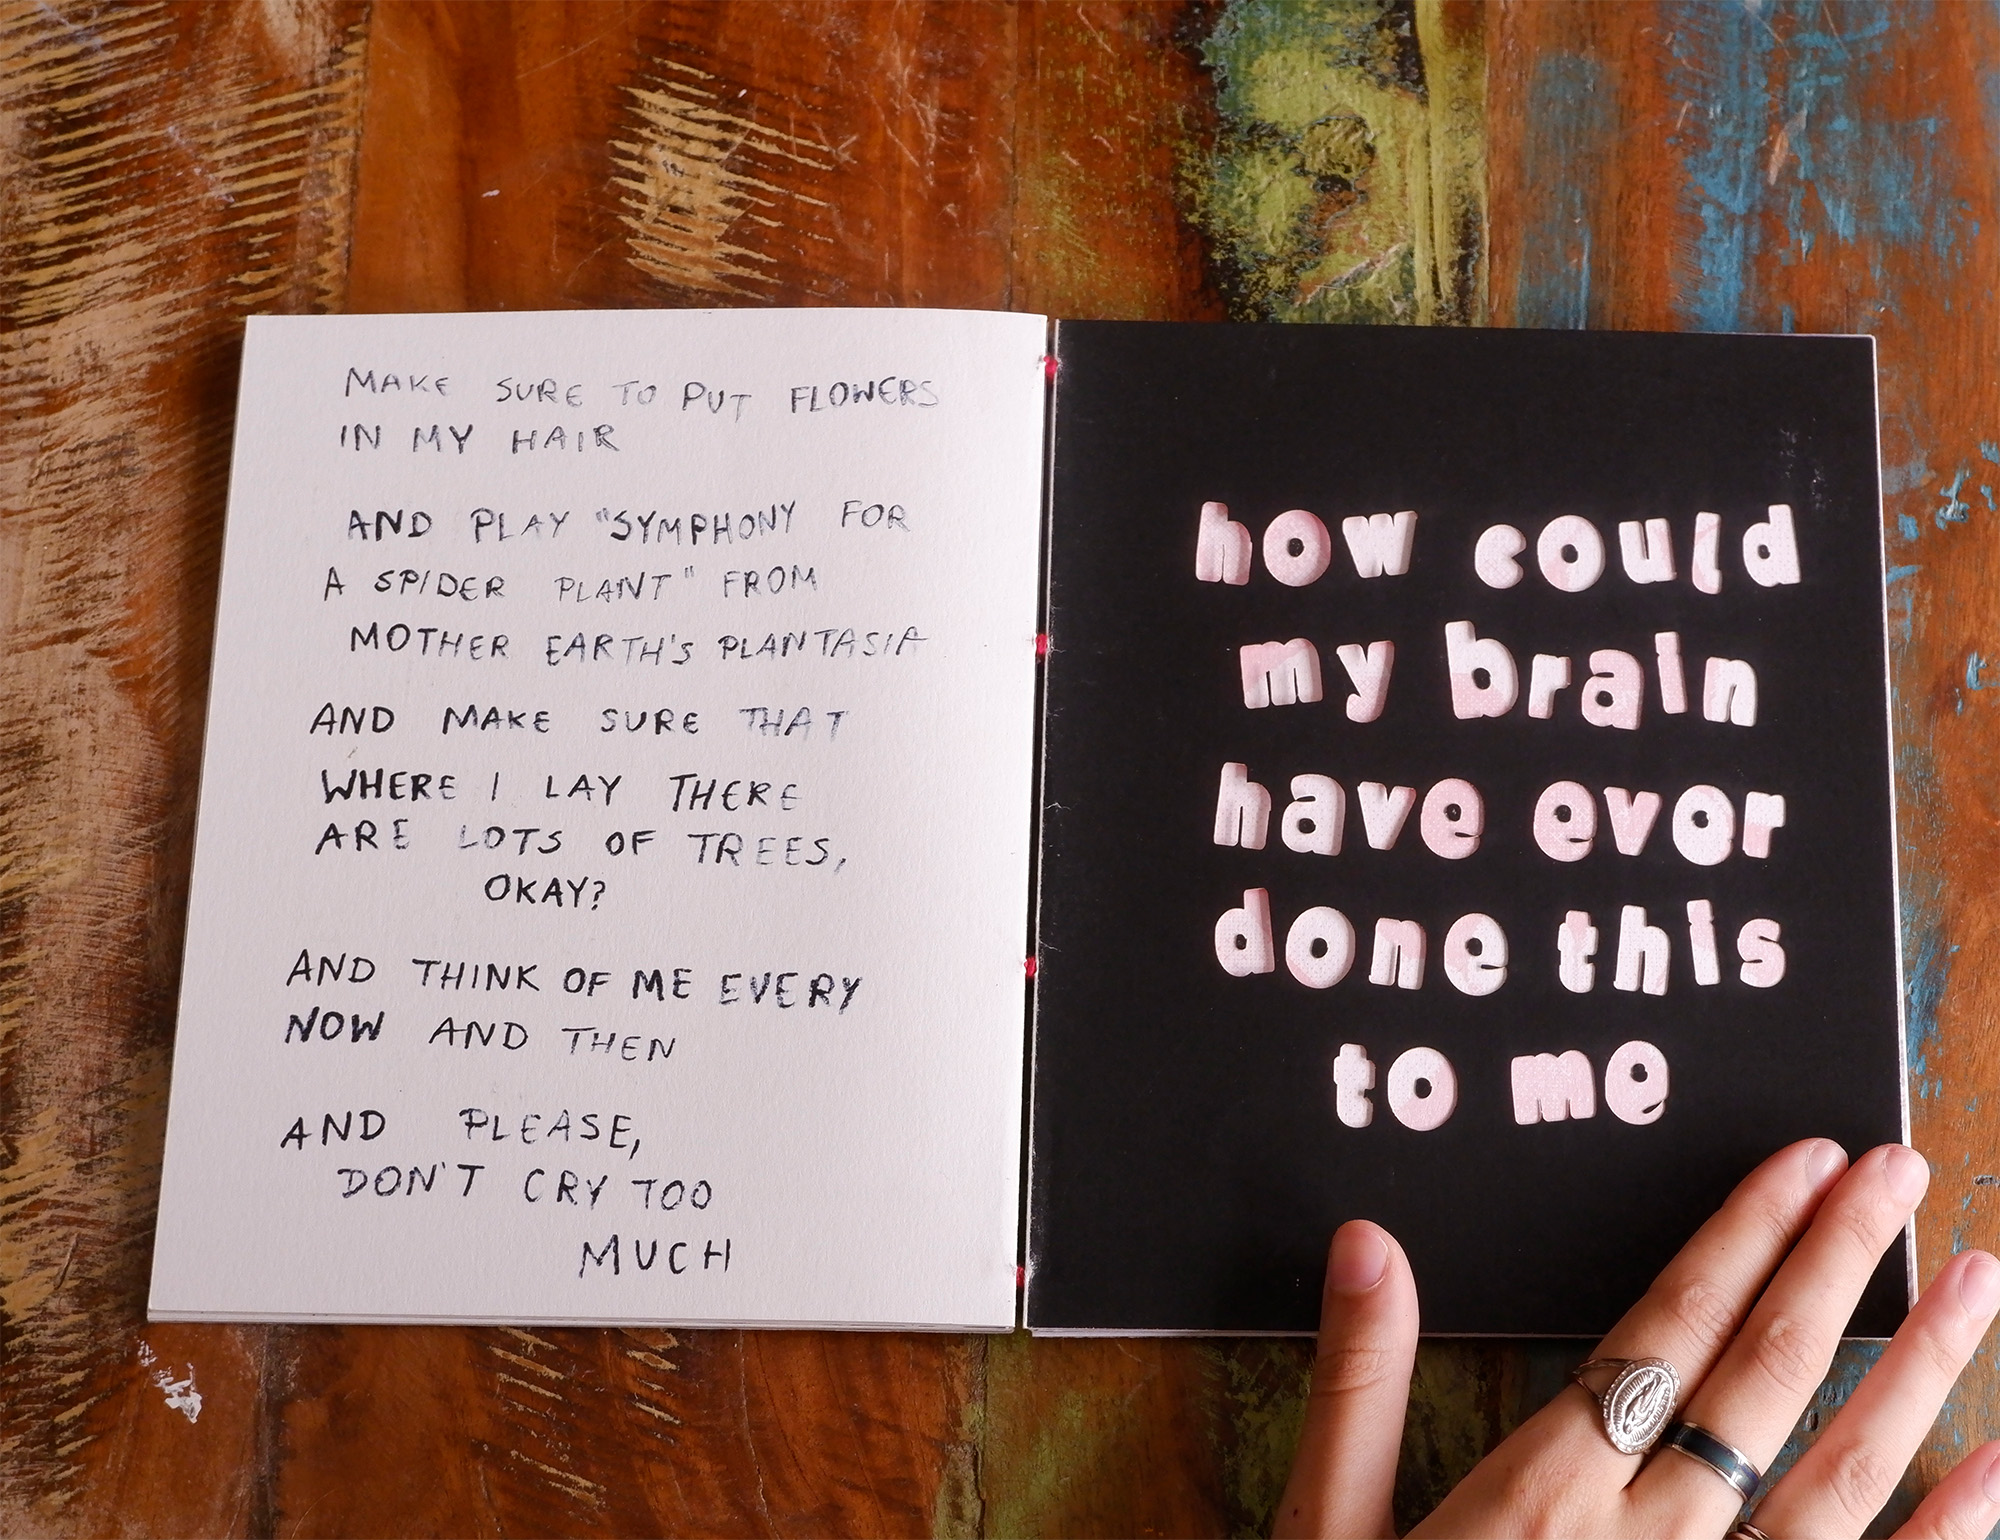 MAKE SURE TO PUT FLOWERS
IN MY HAIR
AND PLAY "SYMPHONY FOR
A SPIDER PLANT" FROM
MOTHER EARTH'S PLANTASIA
AND MAKE SURE THAT
WHERE I LAY THERE
ARE LOTS OF TREES,
OKAY?
AND THINK OF ME EVERY
NOW AND THEN
AND PLEASE,
DON'T CRY TOO
MUCH
how could
my brain
have ever
done this
to me